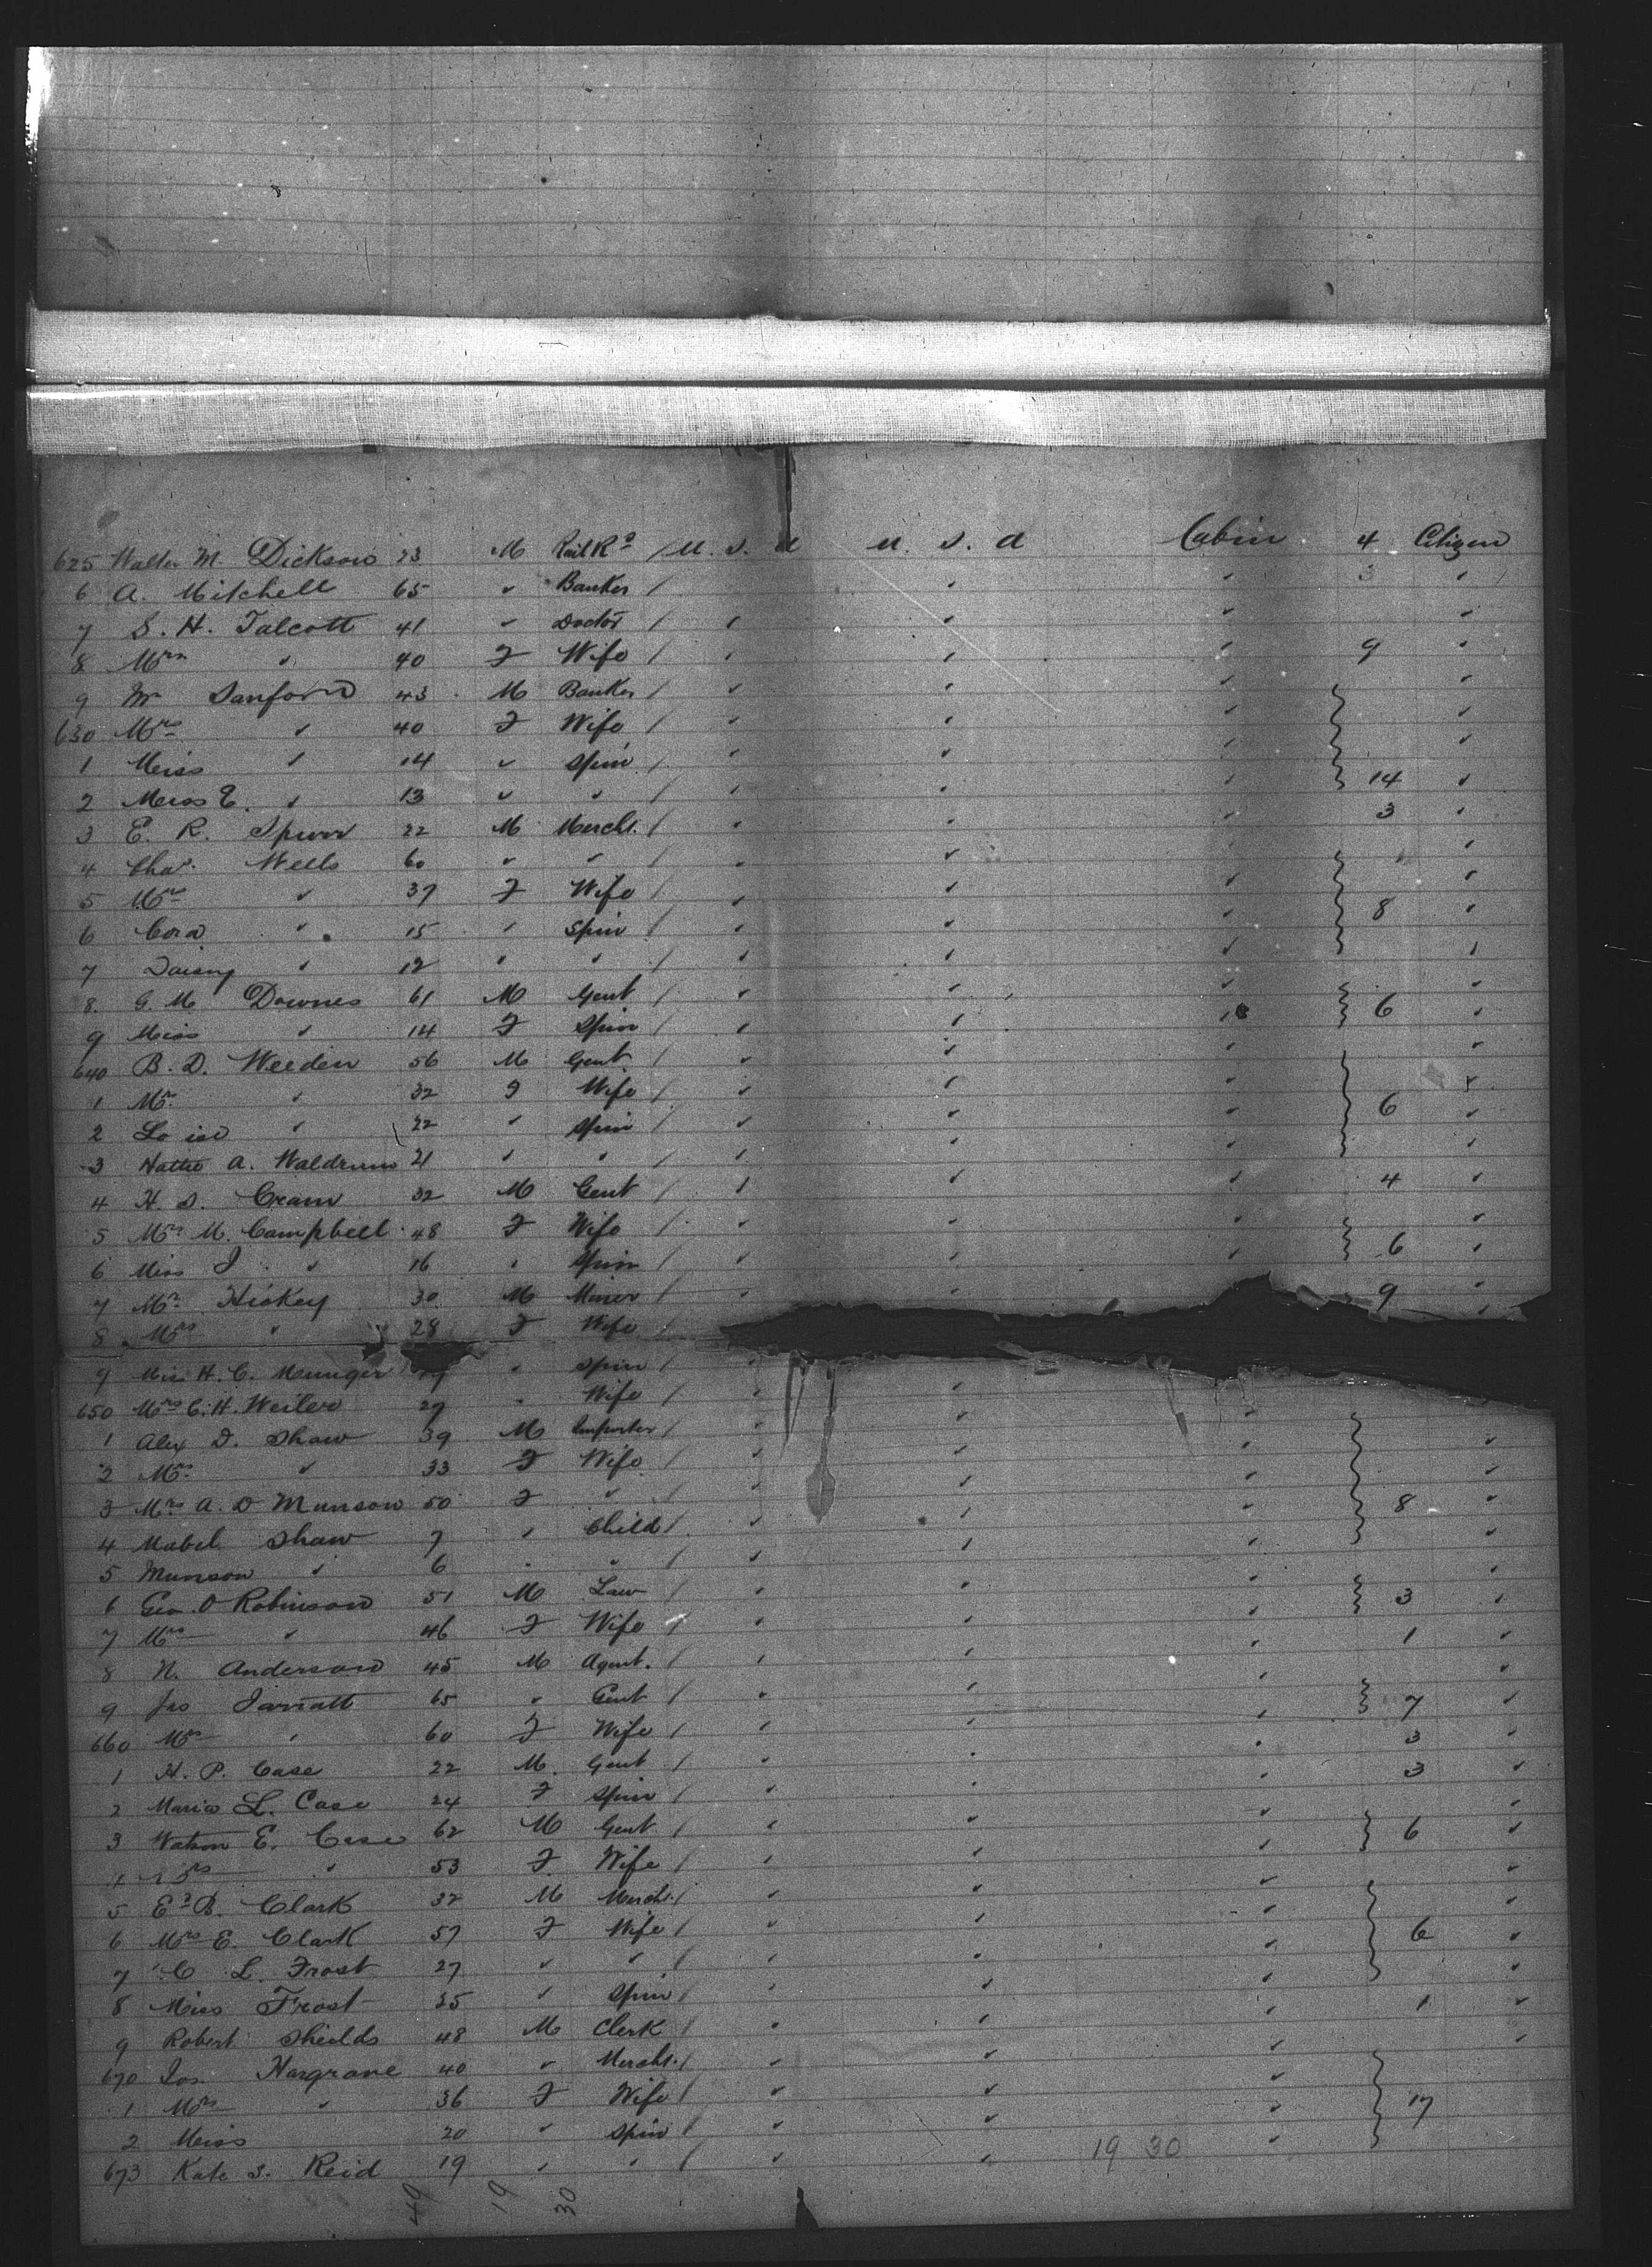 625 Walter M. Dickson 23 M Rail Rd / U. S. A U. S. A Cabin 4 Citizen
6 A. Mitchell 65 " Banker / 3
7 S. H. Talcott 41 " Doctor /
8 Mrs " 40 F Wife / 9
9 Mr Sanford 43 M Banker /
630 Mrs " 40 F Wife /
1 Miss " 14 " Spin /
2 Miss E. " 13 " " / 14
3 E. R. Spurr 22 M Mercht. / 3
4 Chas. Wells 60 " " /
5 Mrs " 37 F Wife /
6 Cora " 15 " Spin / 8
7 Daisy " 12 " " /
8 G. M Downes 61 M Gent /
9 Miss " 14 F Spin / 6
640 B. D. Weeden 56 M Gent.
1 Mrs " 32 F Wife /
2 " 22 " Spin / 6
3 Hattie A. Waldrum 21 " " /
4 H. S. Cram 32 M Gent / 4
5 Mrs M. Campbell 48 F Wife /
6 Miss J " 16 " Spin / 6
7 Mr. Hickey 30 M Miner / 9
8 Mrs " 28 F Wife
9 Miss H. C. Munger " Spin /
650 Mrs C. H. Weiler 27 " Wife /
1 Alex D. Shaw 39 M Importer /
2 Mrs " 33 F Wife /
3 Mrs A. D Munson 50 F " / 8
4 Mabel Shaw 7 " Child /
5 Munson " 6 " " /
6 Geo. O Robinson 51 M Law / 3
7 Mrs " 46 F Wife /
8 N. Anderson 45 M Agent. / 1
9 Jas Jarratt 65 " Gent /
660 Mrs " 60 F Wife / 7
1 H. P. Case 22 M. Gent / 3
2 Maria L. Case 24 F Spin / 3
3 Watson E. Case 62 M Gent /
4 Mrs " 53 F. Wife / 6
5 Ed. B. Clark 32 M Mercht. /
6 Mrs E. Clark 57 F Wife /
7 " C L. Frost 27 " " / 6
8 Miss Frost 25 " Spin /
9 Robert Shields 48 M Clerk / 1
670 Jos. Hargrave 40 " Mercht. /
1 Mrs " 36 F Wife /
2 Miss 20 " Spin / 17
673 Kate S. Reid 19 " " / 19 30
49 19 30